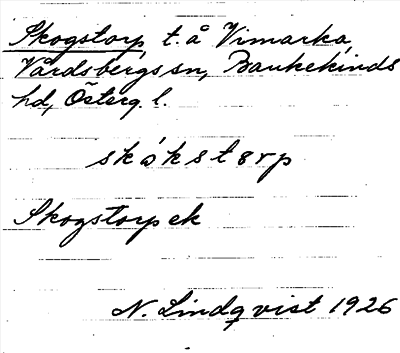 Skogstorp t. å Vimarka,
Vårdsbergs sn, Bankekinds
hd, Österg. l.
skȧkstɵrp
Skogstorp ek
N. Lindqvist 1926